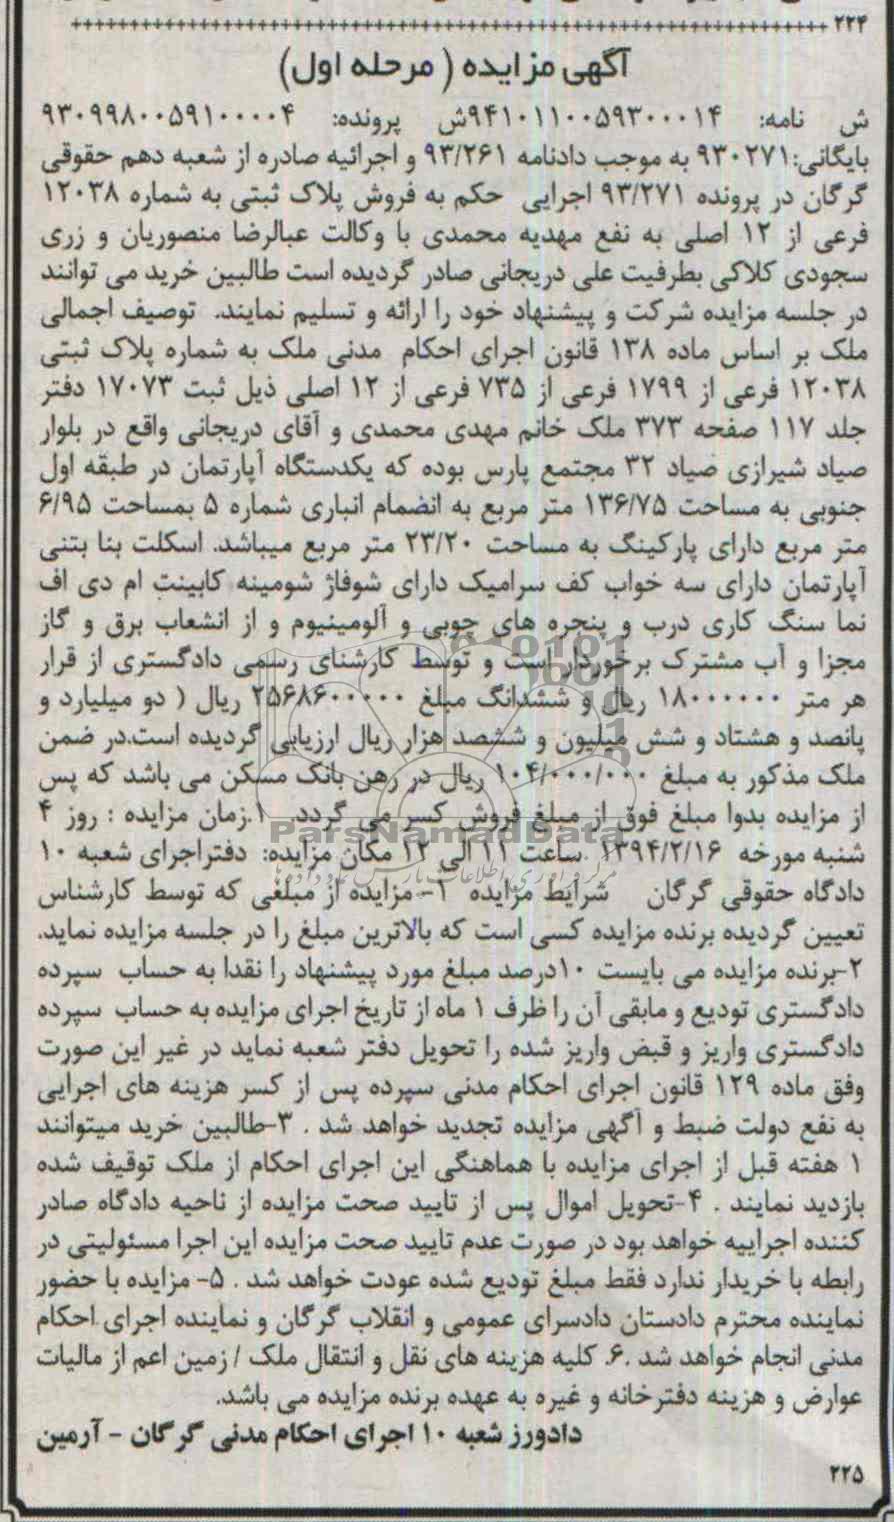 ۲۲۴
آگهی مزایده ( مرحله اول)
ش نامه: ۹۴۱۰۱۱۰۰۵۹۳۰۰۰۱۴ش پرونده: ۹۳۰۹۹۸۰۰۵۹۱۰۰۰۰۴
بایگانی:۹۳۰۲۷۱ به موجب دادنامه ۹۳/۲۶۱ و اجرائیه صادره از شعبه دهم حقوقی
گرگان در پرونده ۹۳/۲۷۱ اجرایی حکم به فروش پلاک ثبتی به شماره ۱۲۰۳۸
فرعی از ۱۲ اصلی به نفع مهدیه محمدی با وکالت عبالرضا منصوریان و زری
سجودی کلاکی بطرفیت علی دریجانی صادر گردیده است طالبین خرید می توانند
در جلسه مزایده شرکت و پیشنهاد خود را ارائه و تسلیم نمایند. توصیف اجمالی
ملک بر اساس ماده ۱۳۸ قانون اجرای احکام مدنی ملک به شماره پلاک ثبتی
۱۲۰۳۸ فرعی از ۱۷۹۹ فرعی از ۷۳۵ فرعی از ۱۲ اصلی ذیل ثبت ۱۷۰۷۳ دفتر
جلد ۱۱۷ صفحه ۳۷۳ ملک خانم مهدی محمدی و آقای دریجانی واقع در بلوار
صیاد شیرازی صیاد ۳۲ مجتمع پارس بوده که یکدستگاه آپارتمان در طبقه اول
جنوبی به مساحت ۱۳۶/۷۵ متر مربع به انضمام انباری شماره ۵ بمساحت ۶/۹۵
متر مربع دارای پارکینگ به مساحت ۲۳/۲۰ متر مربع میباشد. اسکلت بنا بتنی
آپارتمان دارای سه خواب کف سرامیک دارای شوفاژ شومینه کابینت ام دی اف
نما سنگ کاری درب و پنجره های چوبی و آلومینیوم و از انشعاب برق و گاز
مجزا و آب مشترک برخوردار است و توسط کارشنای رسمی دادگستری از قرار
هر متر ۱۸۰۰۰۰۰۰ ریال و ششدانگ مبلغ ۲۵۶۸۶۰۰۰۰۰ ریال ( دو میلیارد و
پانصد و هشتاد و شش میلیون و ششصد هزار ریال ارزیابی گردیده است.در ضمن
ملک مذکور به مبلغ ۱۰۴/۰۰۰/۰۰۰ ریال در رهن بانک مسکن می باشد که پس
از مزایده بدوا مبلغ فوق از مبلغ فروش کسر می گردد. ۱.زمان مزایده : روز ۴
شنبه مورخه ۱۳۹۴/۲/۱۶ ساعت ۱۱ الی ۱۲ مکان مزایده: دفتراجرای شعبه ۱۰
دادگاه حقوقی گرگان شرایط مزایده ۱- مزایده از مبلغی که توسط کارشناس
تعیین گردیده برنده مزایده کسی است که بالاترین مبلغ را در جلسه مزایده نماید.
۲-برنده مزایده می بایست ۱۰درصد مبلغ مورد پیشنهاد را نقدا به حساب سپرده
دادگستری تودیع و مابقی آن را ظرف ۱ ماه از تاریخ اجرای مزایده به حساب سپرده
دادگستری واریز و قبض واریز شده را تحویل دفتر شعبه نماید در غیر این صورت
وفق ماده ۱۲۹ قانون اجرای احکام مدنی سپرده پس از کسر هزینه های اجرایی
به نفع دولت ضبط و آگهی مزایده تجدید خواهد شد . ۳-طالبین خرید میتوانند
۱ هفته قبل از اجرای مزایده با هماهنگی این اجرای احکام از ملک توقیف شده
بازدید نمایند . ۴-تحویل اموال پس از تایید صحت مزایده از ناحیه دادگاه صادر
کننده اجراییه خواهد بود در صورت عدم تایید صحت مزایده این اجرا مسئولیتی در
رابطه با خریدار ندارد فقط مبلغ تودیع شده عودت خواهد شد . ۵- مزایده با حضور
نماینده محترم دادستان دادسرای عمومی و انقلاب گرگان و نماینده اجرای احکام
مدنی انجام خواهد شد .۶. کلیه هزینه های نقل و انتقال ملک / زمین اعم از مالیات
عوارض و هزینه دفترخانه و غیره به عهده برنده مزایده می باشد.
دادورز شعبه ۱۰ اجرای احکام مدنی گرگان - آرمین
۲۲۵
ParsNamadData